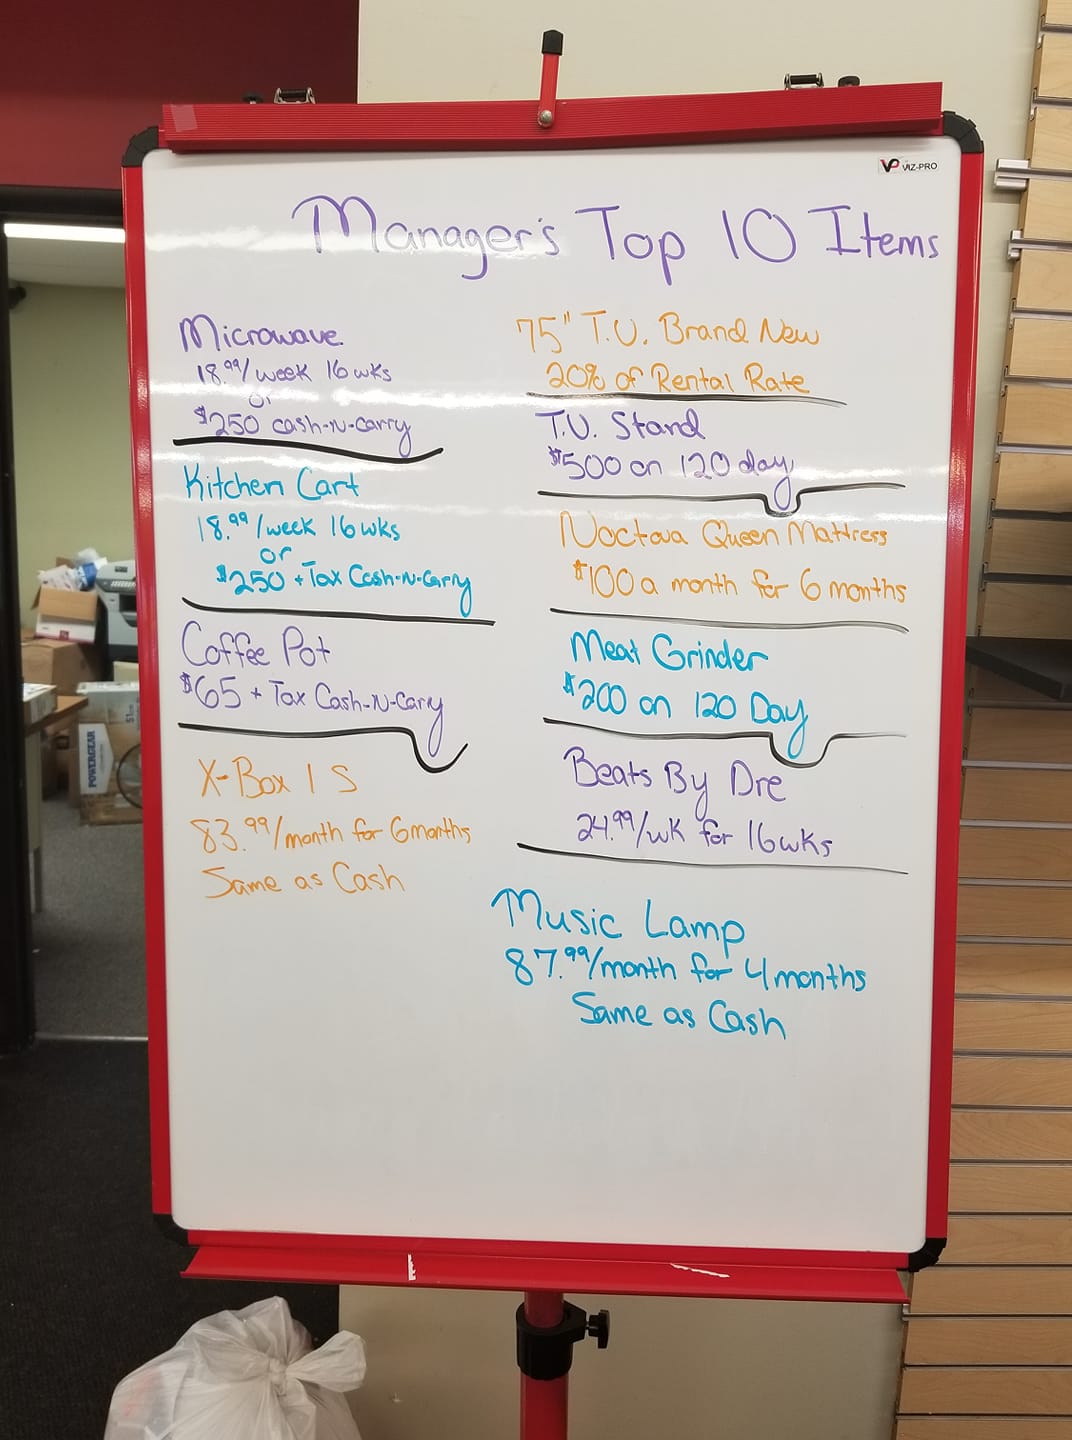 VP VIZ-PRO
Manager's Top 10 Items
Microwave
18.99/week 16 wks
or
$250 cash-n-carry
Kitchen Cart
18.99/week 16 wks
or
$250 + Tax Cash-N-Carry
Coffee Pot
$65 + Tax Cash-N-Carry
X-Box 1 S
83.99/month for 6 months
Same as Cash
75" T.V. Brand New
20% of Rental Rate
T.V. Stand
$500 on 120 day
Noctova Queen Mattress
$100 a month for 6 months
Meat Grinder
$200 on 120 Day
Beats By Dre
24.99/wk for 16 wks
Music Lamp
87.99/month for 4 months
Same as Cash
POWERGEAR